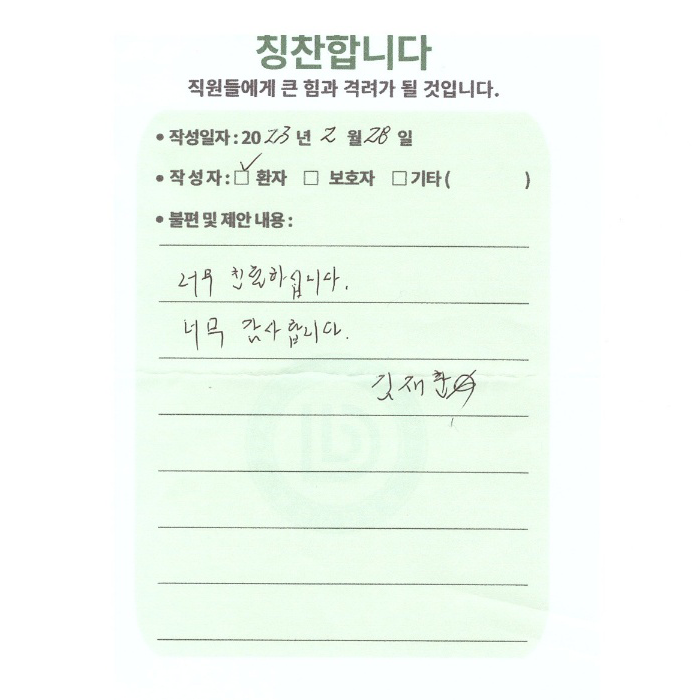 칭찬합니다
직원들에게 큰 힘과 격려가 될 것입니다.
• 작성일자 : 2023 년 2 월 28 일
• 작 성 자 : ☑ 환자 □ 보호자 □ 기타 ( )
• 불편 및 제안 내용 :
너무 친절하십니다.
너무 감사합니다.
김재환